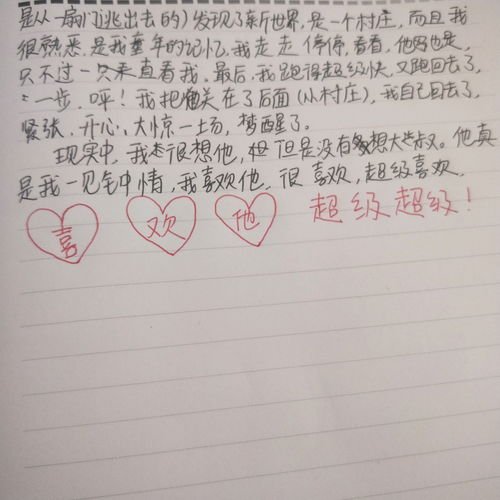 是从一扇门逃出去的)发现了新世界,是一个村庄,而且我
很熟悉,是我童年的记忆,我走走停停,看看,他妈也是,
只不过一只来直看我.最后,我跑得超级快,又跑回去了,
一步,呯!我把他关在了后面(从村庄),我自己回去了,
紧张、开心、大惊一场,梦醒了。
现实中,我很想他,但是没有多想大叔。他真
是我一见钟情,我喜欢他,很喜欢,超级喜欢.
喜 欢 他 超级超级!